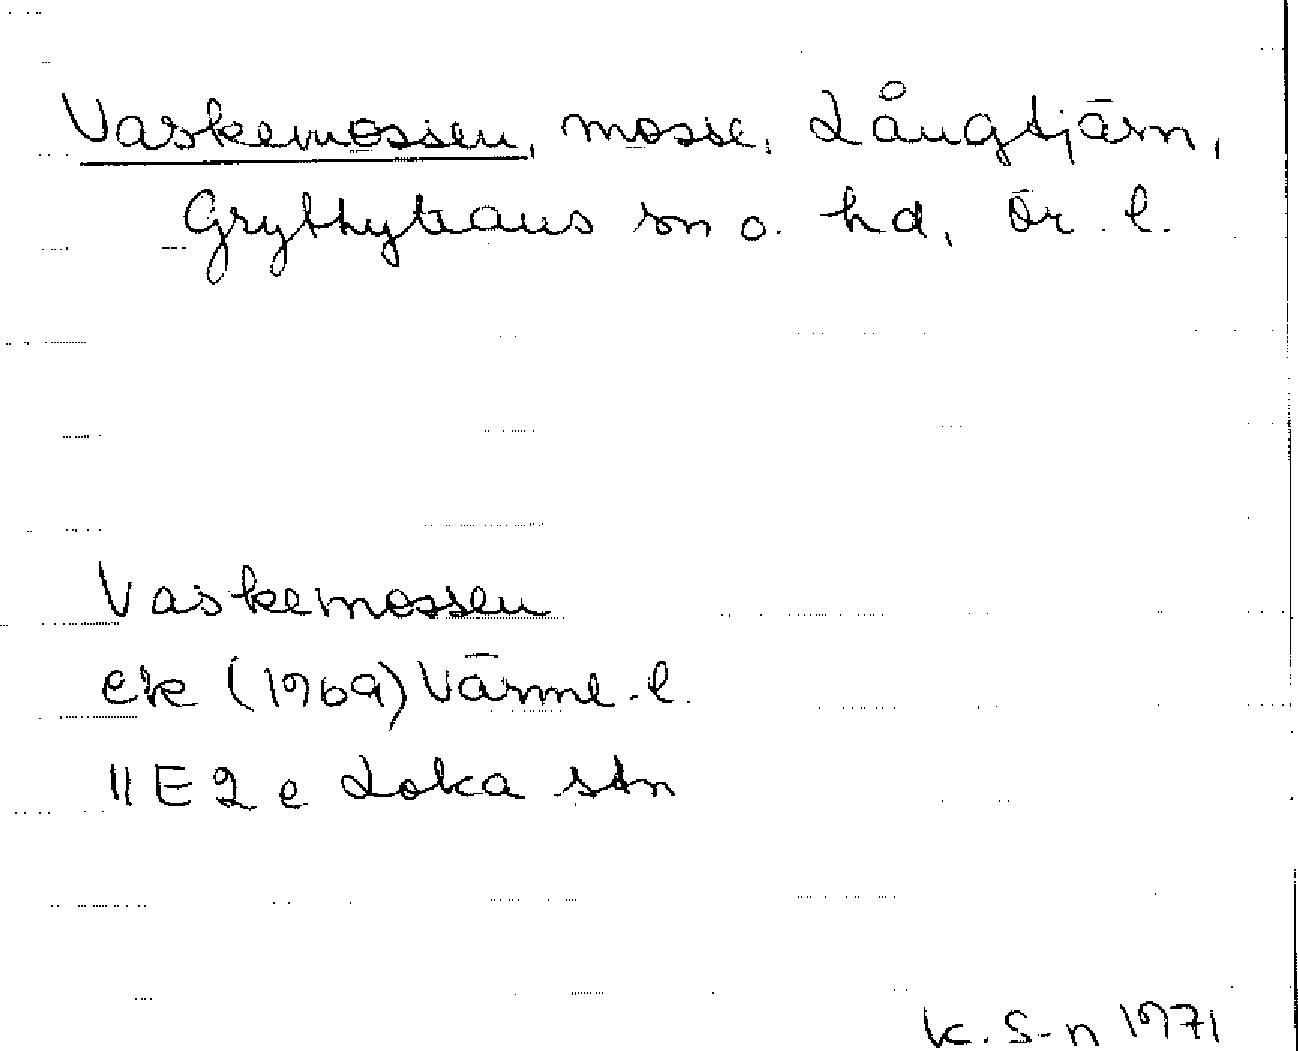 Vaskemossen, mosse, Långtjärn,
Grythyttans sn o. hd, Ör. l.
Vaskemossen
ek (1969) Värml. l.
11 E 2 e Loka stn
K. S-n 1971